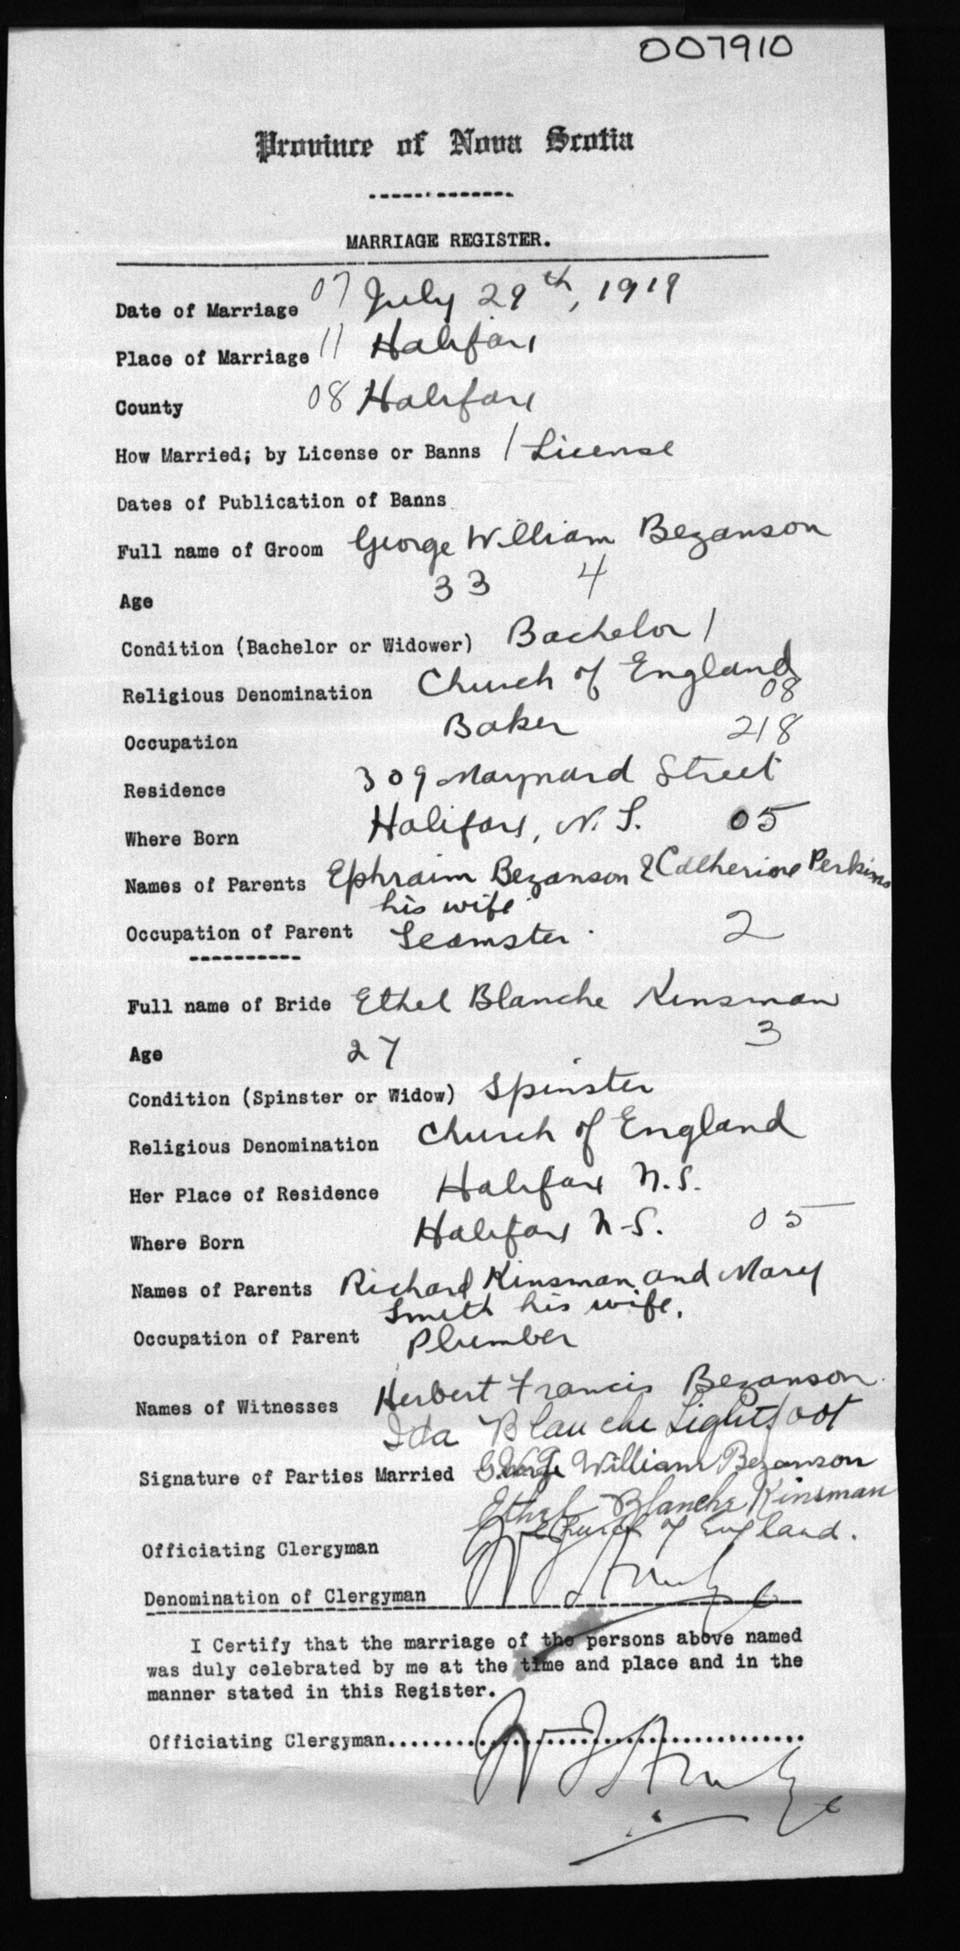 007910
Province of Nova Scotia
MARRIAGE REGISTER.
Date of Marriage 07 July 29th, 1919
Place of Marriage 11 Halifax
County 08 Halifax
How Married; by License or Banns 1 License
Dates of Publication of Banns
Full name of Groom George William Bezanson
Age 33 4
Condition (Bachelor or Widower) Bachelor 1
Religious Denomination Church of England
08
Occupation Baker 218
Residence 309 Maynard Street
Where Born Halifax, N.S. 05
Names of Parents Ephraim Bezanson & Catherine Perkins
his wife
Occupation of Parent Teamster. 2
Full name of Bride Ethel Blanche Kinsman
Age 27 3
Condition (Spinster or Widow) Spinster
Religious Denomination Church of England
Her Place of Residence Halifax N.S.
Where Born Halifax N-S. 05
Names of Parents Richard Kinsman and Mary
Smith his wife.
Occupation of Parent Plumber
Names of Witnesses Herbert Francis Bezanson.
Ida Blanche Lightfoot
Signature of Parties Married George William Bezanson
Ethel Blanche Kinsman
Church of England.
Officiating Clergyman
Denomination of Clergyman
I Certify that the marriage of the persons above named
was duly celebrated by me at the time and place and in the
manner stated in this Register.
Officiating Clergyman